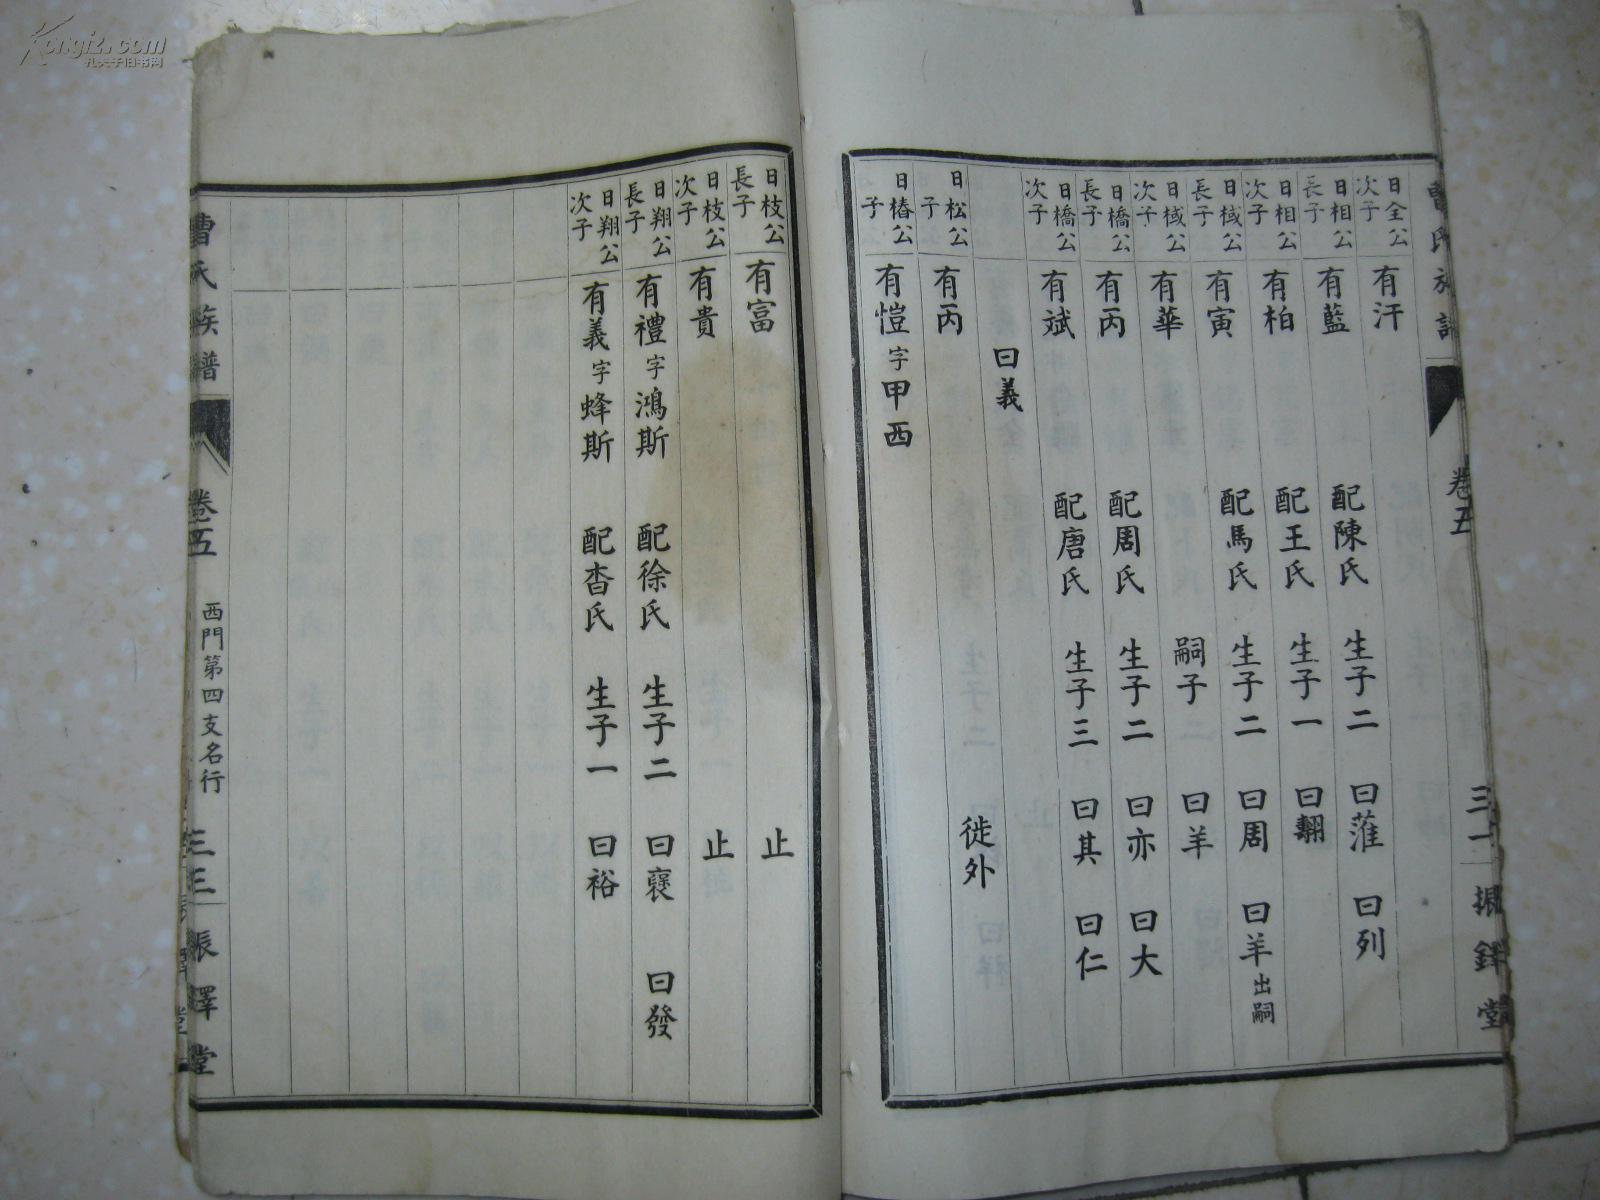 曹氏族譜
卷五
三十
振鐸堂
日全公次子 有汗
日相公長子 有藍 配陳氏 生子二 曰蓷 曰列
日相公次子 有柏 配王氏 生子一 曰翻
日棫公長子 有寅 配馬氏 生子二 曰周 曰羊出嗣
日棫公次子 有華 嗣子 曰羊
日橋公長子 有丙 配周氏 生子二 曰亦 曰大
日橋公次子 有斌 配唐氏 生子三 曰其 曰仁
曰義
日松公子 有丙 徙外
日椿公子 有愷 字甲西
日枝公長子 有富 止
日枝公次子 有貴 止
日翔公長子 有禮 字鴻斯 配徐氏 生子二 曰襃 曰發
日翔公次子 有義 字蜂斯 配杳氏 生子一 曰裕
曹氏族譜
卷五
西門第四支名行
三三
振鐸堂
Kongfz.com
孔夫子旧书网